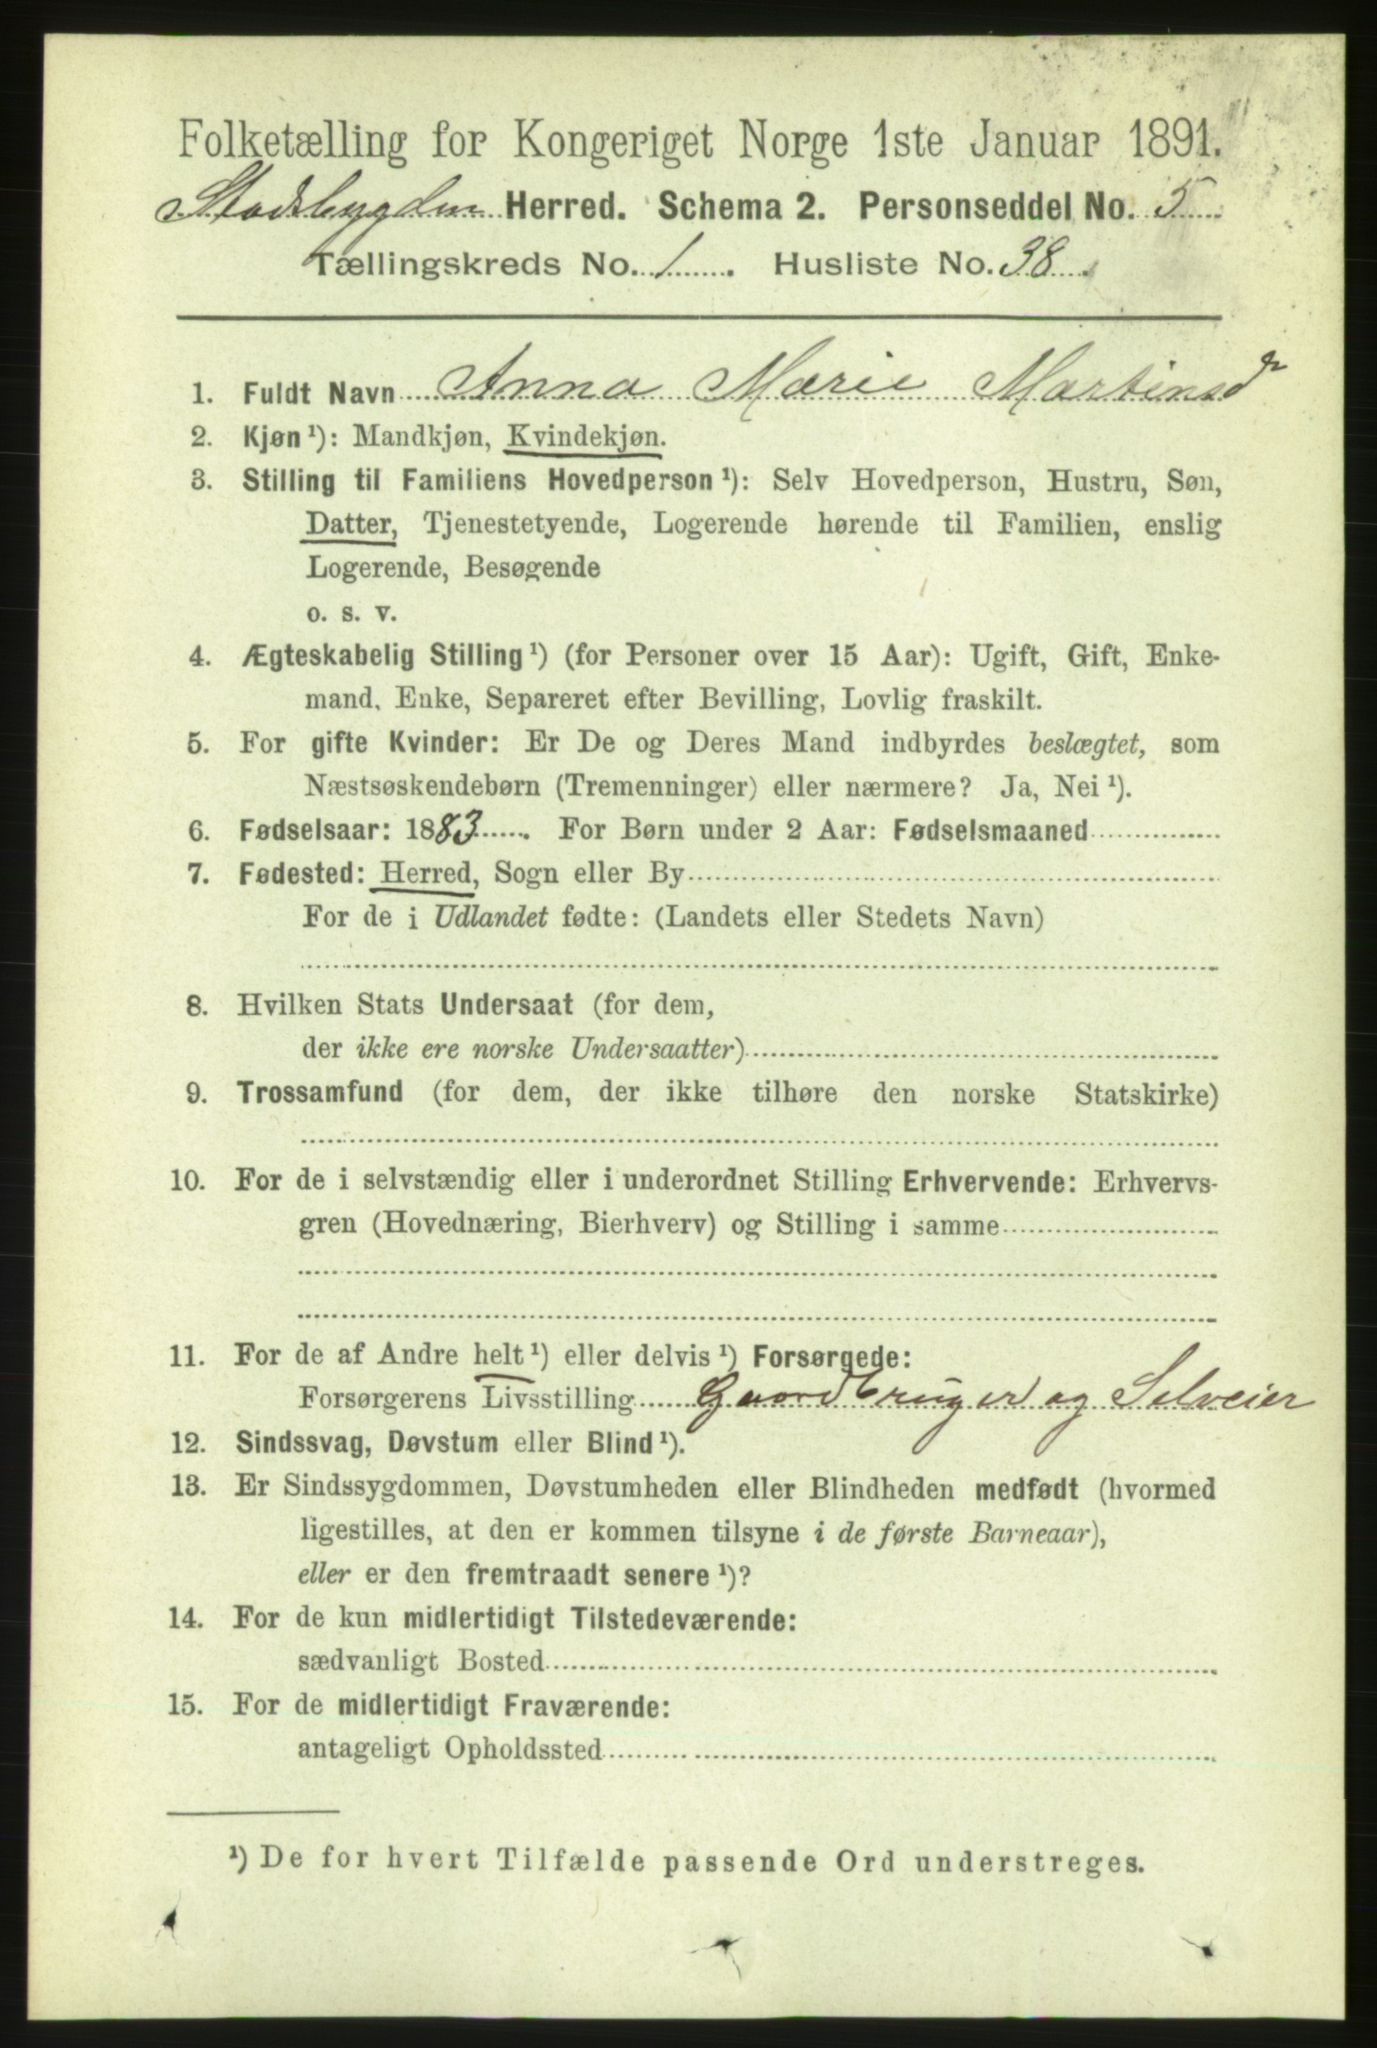 Folketælling for Kongeriget Norge 1ste Januar 1891.
Stadsbygden Herred. Schema 2. Personseddel No. 5
Tællingskreds No. 1. Husliste No. 38.
1. Fuldt Navn Anna Marie Martinsdr
2. Kjøn ¹): Mandkjøn, Kvindekjøn.
3. Stilling til Familiens Hovedperson ¹): Selv Hovedperson, Hustru, Søn,
Datter, Tjenestetyende, Logerende hørende til Familien, enslig
Logerende, Besøgende
o. s. v.
4. Ægteskabelig Stilling ¹) (for Personer over 15 Aar): Ugift, Gift, Enke-
mand, Enke, Separeret efter Bevilling, Lovlig fraskilt.
5. For gifte Kvinder: Er De og Deres Mand indbyrdes beslægtet, som
Næstsøskendebørn (Tremenninger) eller nærmere? Ja, Nei ¹).
6. Fødselsaar: 1883. For Børn under 2 Aar: Fødselsmaaned
7. Fødested: Herred, Sogn eller By
For de i Udlandet fødte: (Landets eller Stedets Navn)
8. Hvilken Stats Undersaat (for dem,
der ikke ere norske Undersaatter)
9. Trossamfund (for dem, der ikke tilhøre den norske Statskirke)
10. For de i selvstændig eller i underordnet Stilling Erhvervende: Erhvervs-
gren (Hovednæring, Bierhverv) og Stilling i samme
11. For de af Andre helt ¹) eller delvis ¹) Forsørgede:
Forsørgerens Livsstilling Gaardbruger og Selveier
12. Sindssvag, Døvstum eller Blind ¹).
13. Er Sindssygdommen, Døvstumheden eller Blindheden medfødt (hvormed
ligestilles, at den er kommen tilsyne i de første Barneaar),
eller er den fremtraadt senere ¹)?
14. For de kun midlertidigt Tilstedeværende:
sædvanligt Bosted
15. For de midlertidigt Fraværende:
antageligt Opholdssted
¹) De for hvert Tilfælde passende Ord understreges.